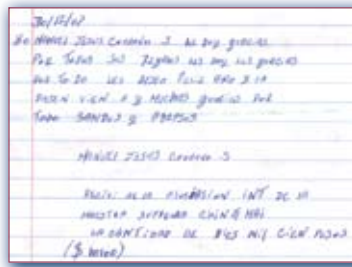 30/12/07
Yo MANUEL JESUS CORDERO S LES DOY GRACIAS
POR TODOS SUS REGALOS LES DOY LAS GRACIAS
POR TODO LES DESEO FELIZ AÑO Y LA
PASEN VIEN A Y MUCHAS GRACIAS POR
TODO SALUDOS Y ABRASOS
MANUEL JESUS CORDERO S
RECIVI DE LA FUNDASION INT DE LA
MAESTRA SUPREMA CHING HAI
LA CANTIDAD DE DIES MIL CIEN PESOS